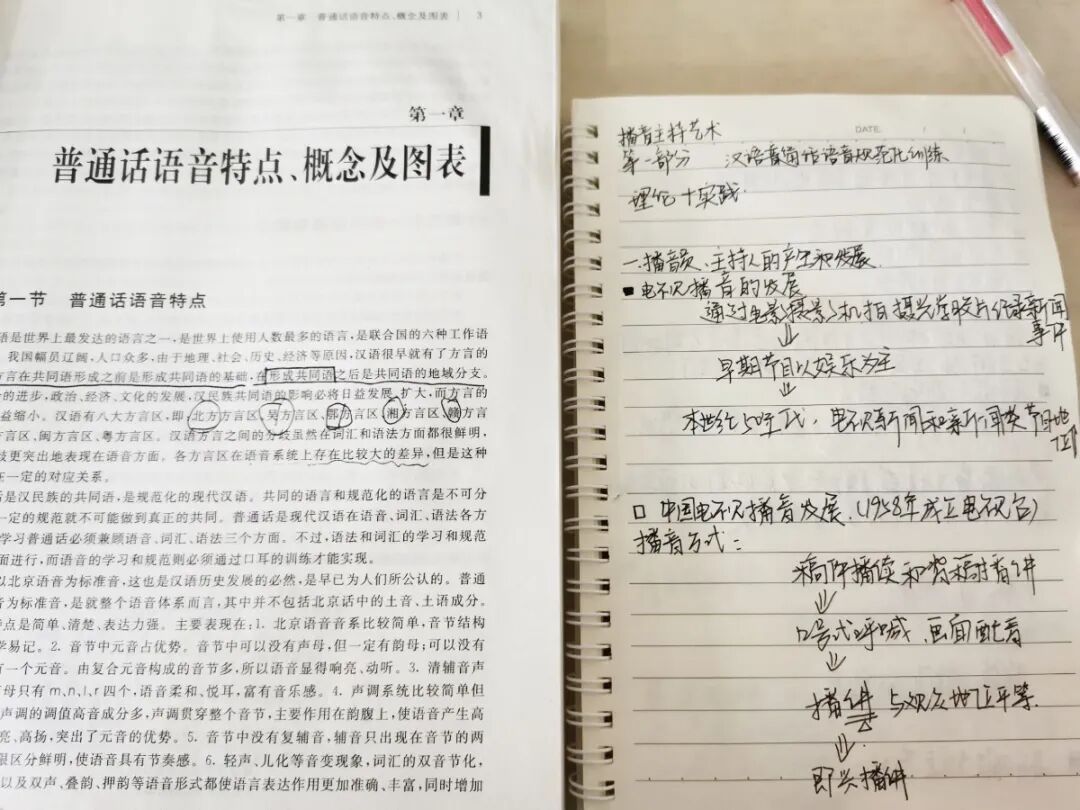 第一章 普通话语音特点、概念及图表 | 3
第一章
普通话语音特点、概念及图表
第一节 普通话语音特点
语是世界上最发达的语言之一,是世界上使用人数最多的语言,是联合国的六种工作语
我国幅员辽阔,人口众多,由于地理、社会、历史、经济等原因,汉语很早就有了方言的
方言在共同语形成之前是形成共同语的基础,在形成共同语之后是共同语的地域分支。
的进步,政治、经济、文化的发展,汉民族共同语的影响必将日益发展、扩大,而方言的
益缩小。汉语有八大方言区,即北方方言区、吴方言区、鄂方言区、湘方言区、赣方言
方言区、闽方言区、粤方言区。汉语方言之间的分歧虽然在词汇和语法方面都很鲜明,
歧更突出地表现在语音方面。各方言区在语音系统上存在比较大的差异,但是这种
在一定的对应关系。
是汉民族的共同语,是规范化的现代汉语。共同的语言和规范化的语言是不可分
一定的规范就不可能做到真正的共同。普通话是现代汉语在语音、词汇、语法各方
学习普通话必须兼顾语音、词汇、语法三个方面。不过,语法和词汇的学习和规范
面进行,而语音的学习和规范则必须通过口耳的训练才能实现。
以北京语音为标准音,这也是汉语历史发展的必然,是早已为人们所公认的。普通
音为标准音,是就整个语音体系而言,其中并不包括北京话中的土音、土语成分。
特点是简单、清楚、表达力强。主要表现在:1. 北京语音音系比较简单,音节结构
学易记。2. 音节中元音占优势。音节中可以没有声母,但一定有韵母;可以没有
有一个元音。由复合元音构成的音节多,所以语音显得响亮、动听。3. 清辅音声
母只有m、n、l、r四个,语音柔和、悦耳,富有音乐感。4. 声调系统比较简单但
声调的调值高音成分多,声调贯穿整个音节,主要作用在韵腹上,使语音产生高
亮、高扬,突出了元音的优势。5. 音节中没有复辅音,辅音只出现在音节的两
限区分鲜明,使语音具有节奏感。6. 轻声、儿化等音变现象,词汇的双音节化,
以及双声、叠韵、押韵等语音形式都使语言表达作用更加准确、丰富,同时增加
DATE / /
播音主持艺术
第一部分 汉语普通话语音规范化训练
理论+实践.
一.播音员、主持人的产生和发展.
电视播音的发展
通过电影摄影机拍摄光学胶片纪录新闻
事件
早期节目以娱乐为主
本世纪50年代,电视新闻和新闻类节目地
位↑
中国电视播音发展.(1958年成立电视台)
播音方式:
稿件播读和背稿播讲
口号式呼喊,画面配着
播讲 与观众地位平等.
即兴播讲